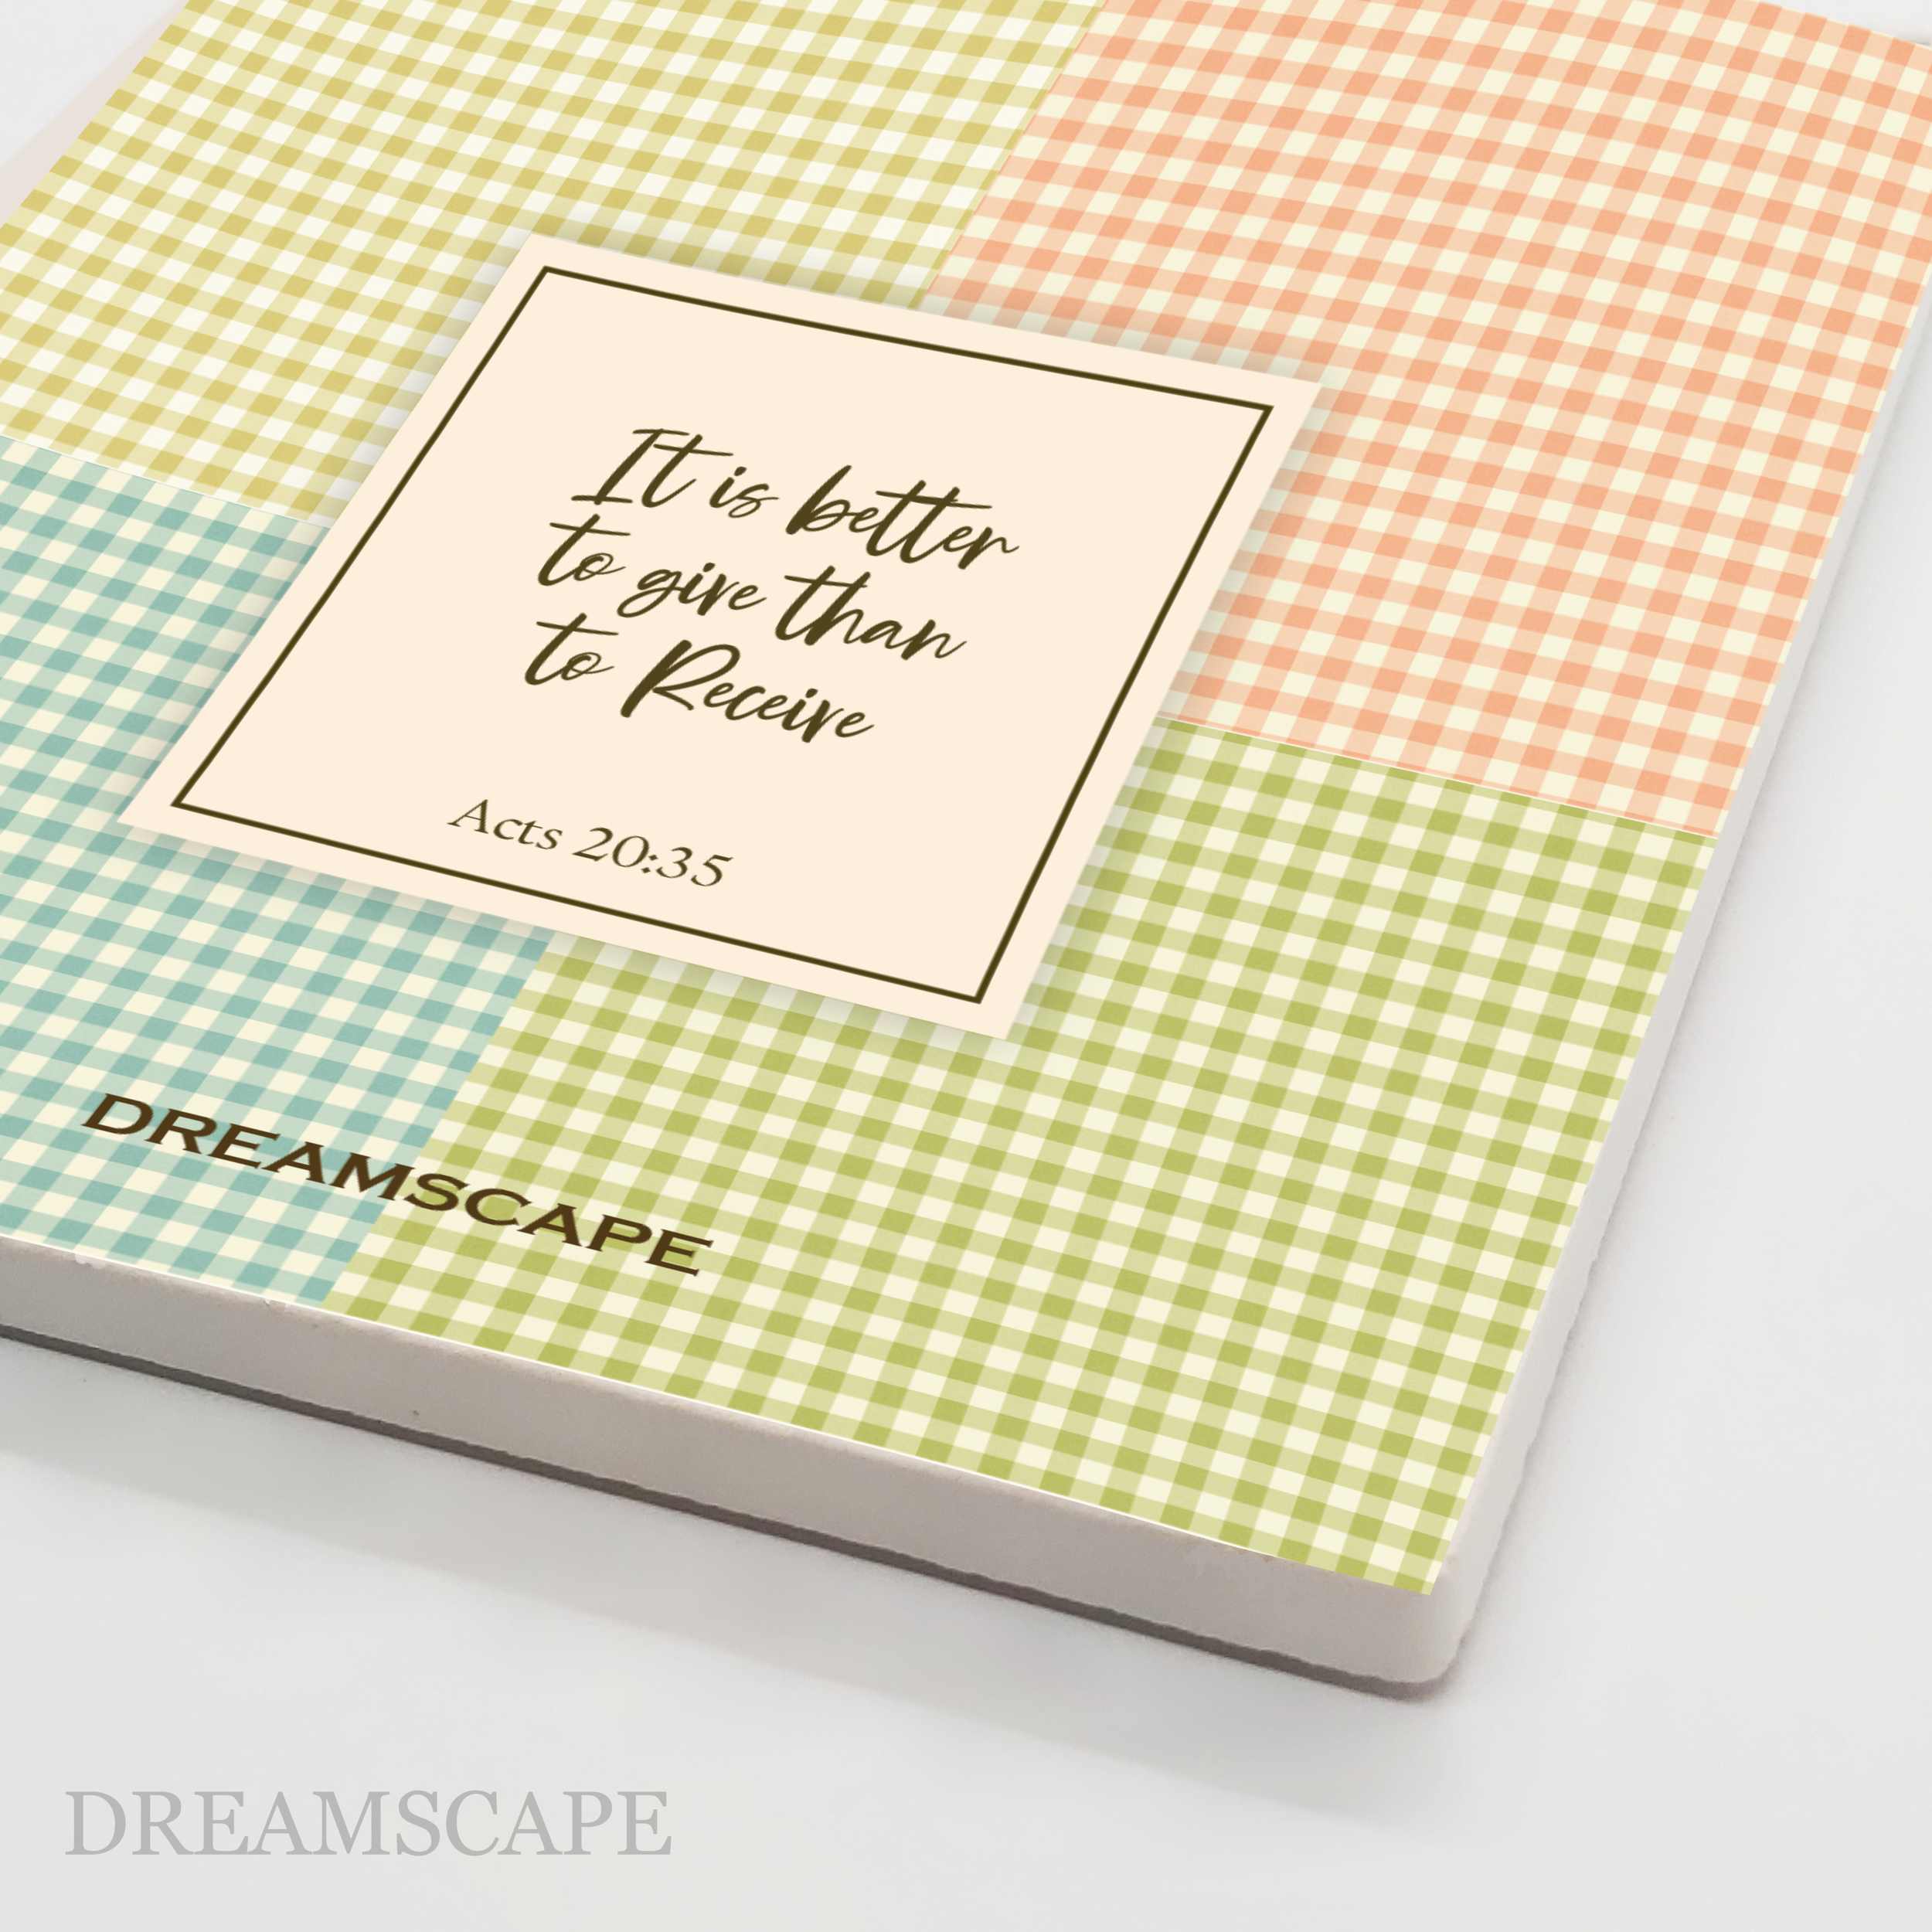 It is better
to give than
to Receive
Acts 20:35
DREAMSCAPE
DREAMSCAPE